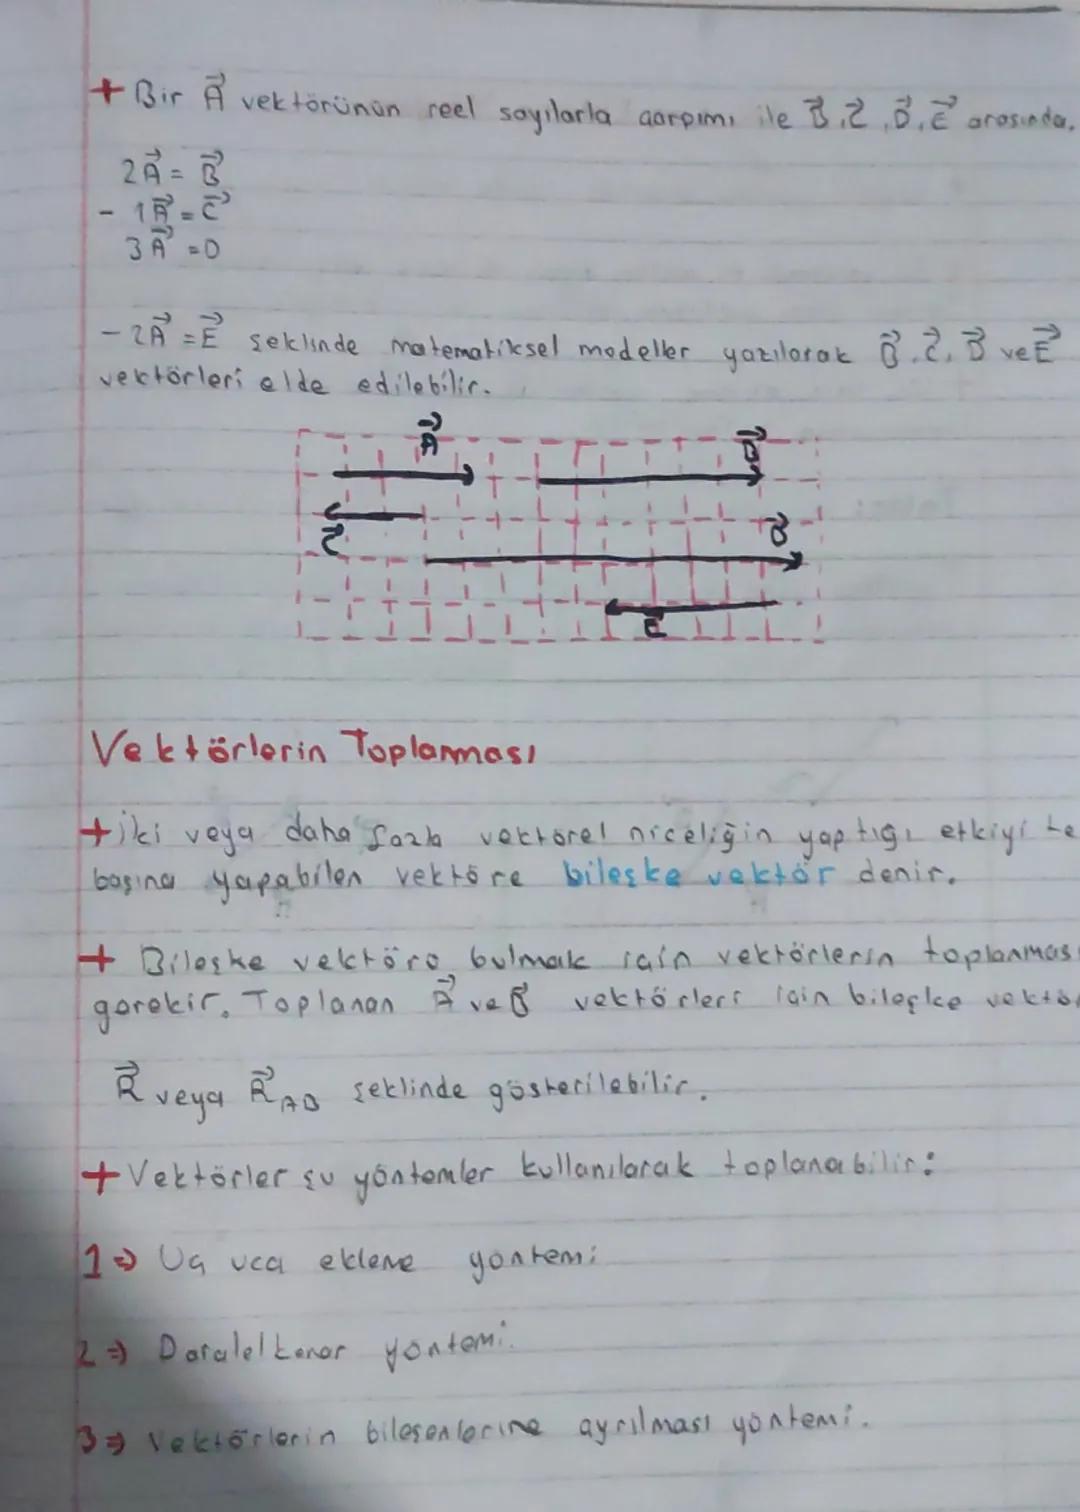 + Bir A⃗ vektörünün reel sayılarla çarpımı ile B⃗, C⃗, D⃗, E⃗ arasında,
2A⃗ = B⃗
- 1A⃗ = C⃗
3A⃗ = D
- 2A⃗ = E⃗ şeklinde matematiksel modeller yazılarak B⃗, C⃗, D⃗ ve E⃗
vektörleri elde edilebilir.
A⃗ B⃗
C⃗ D⃗
E⃗
Vektörlerin Toplanması
+ İki veya daha fazla vektörel niceliğin yaptığı etkiyi te
başına yapabilen vektöre bileşke vektör denir.
+ Bileşke vektörü bulmak için vektörlerin toplanması
gerekir. Toplanan A⃗ ve B⃗ vektörleri için bileşke vektör
R⃗ veya R⃗AB şeklinde gösterilebilir.
+ Vektörler şu yöntemler kullanılarak toplanabilir:
1⇒ Uç uca ekleme yöntemi
2⇒ Paralelkenar yöntemi.
3⇒ Vektörlerin bileşenlerine ayrılması yöntemi.